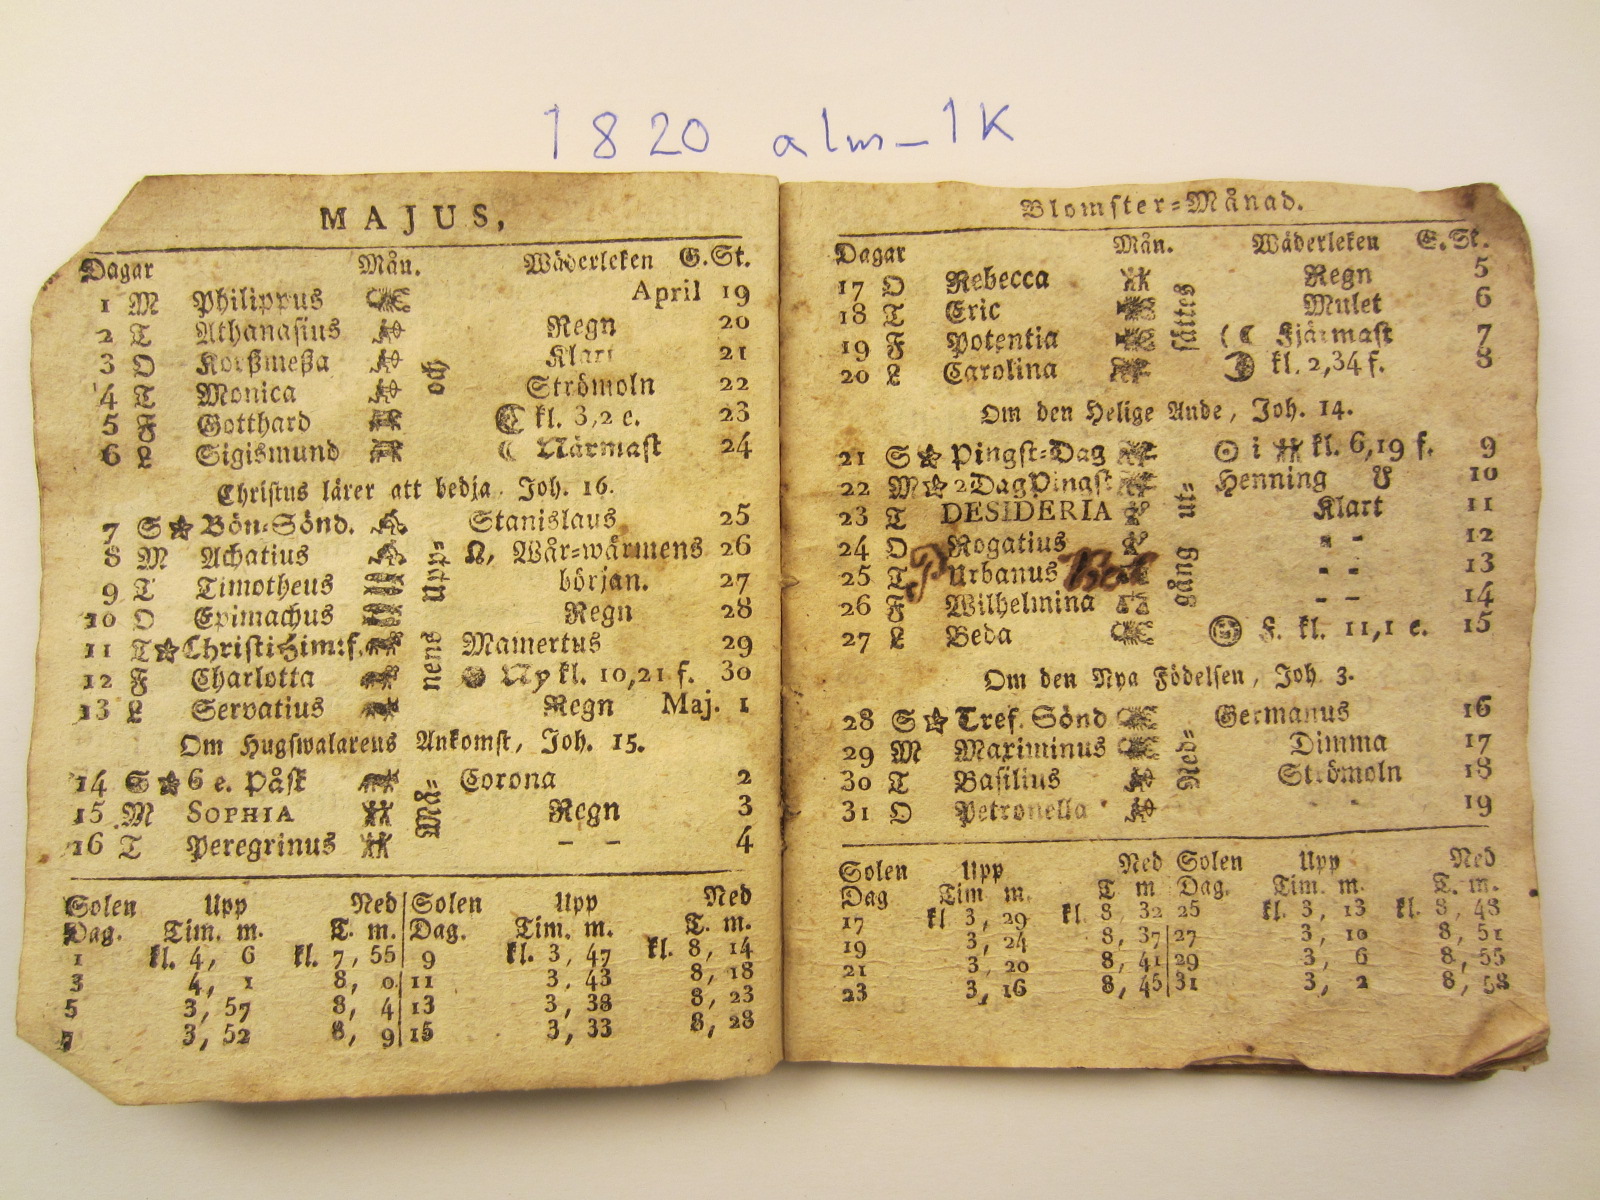 1820 alm-1K
MAJUS,
Dagar Mån. Wäderleken G.St.
1 M Philippus April 19
2 T Athanasius Regn 20
3 O Korßmeßa Klart 21
4 T Monica och Strömoln 22
5 F Gotthard ☾ kl. 3,2 e. 23
6 L Sigismund ☾ Närmast 24
Christus lärer att bedja, Joh. 16.
7 S☆ Bön-Sönd. Stanislaus 25
8 M Achatius Upp- ☊, Wår-wärmens 26
9 T Timotheus början. 27
10 O Epimachus Regn 28
11 T☆ Christi Him:f. nens Mamertus 29
12 F Charlotta ● Ny kl. 10,21 f. 30
13 L Servatius Regn Maj. 1
Om Hugswalarens Ankomst, Joh. 15.
14 S☆ 6 e. Påsk Corona 2
15 M SOPHIA Må- Regn 3
16 T Peregrinus – – 4
Solen Upp Ned Solen Upp Ned
Dag. Tim. m. T. m. Dag. Tim. m. T. m.
1 kl. 4, 6 kl. 7, 55 9 kl. 3, 47 kl. 8, 14
3 4, 1 8, 0 11 3, 43 8, 18
5 3, 57 8, 4 13 3, 38 8, 23
7 3, 52 8, 9 15 3, 33 8, 28
Blomster-Månad.
Dagar Mån. Wäderleken G.St.
17 O Rebecca Regn 5
18 T Eric sättes Mulet 6
19 F Potentia (☾ Fjärmast 7
20 L Carolina ☽ kl. 2,34 f. 8
Om den Helige Ande, Joh. 14.
21 S☆ Pingst-Dag ☉ i ♊ kl. 6,19 f. 9
22 M☆ 2 Dag Pingst Henning ☋ 10
23 T DESIDERIA ut- Klart 11
24 O Rogatius - - 12
25 T Urbanus gång - - 13
26 F Wilhelmina - - 14
27 L Beda F. kl. 11,1 e. 15
Om den Nya Födelsen, Joh. 3.
28 S☆ Tref. Sönd Germanus 16
29 M Maximinus Ned- Dimma 17
30 T Basilius Strömoln 18
31 O Petronella - - 19
Solen Upp Ned Solen Upp Ned
Dag Tim m. T m Dag. Tim. m. T. m.
17 kl 3, 29 kl. 8, 32 25 kl. 3, 13 kl. 8, 48
19 3, 24 8, 37 27 3, 10 8, 51
21 3, 20 8, 41 29 3, 6 8, 55
23 3, 16 8, 45 31 3, 2 8, 58